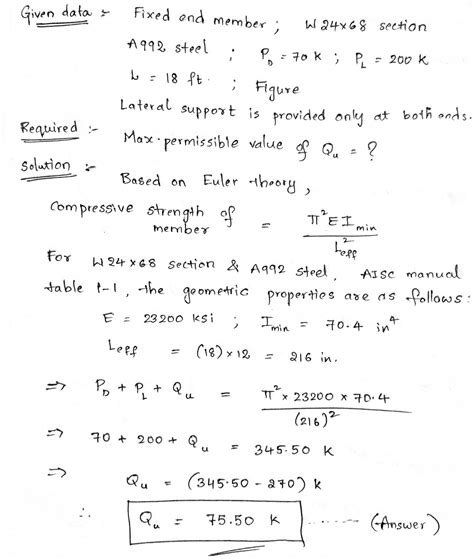 Given data :- Fixed end member ; W 24×68 section
A992 steel ; P_D = 70 K ; P_L = 200 K
L = 18 ft. ; Figure
Lateral support is provided only at both ends.
Required :- Max. permissible value of Q_u = ?
Solution :-
Based on Euler theory,
Compressive strength of member = π²EI_min / L²_eff
For W24×68 section & A992 steel, AISC manual
table 1-1, the geometric properties are as follows:
E = 23200 KSi ; I_min = 70.4 in⁴
L_eff = (18)×12 = 216 in.
⇒ P_D + P_L + Q_u = π² × 23200 × 70.4 / (216)²
⇒ 70 + 200 + Q_u = 345.50 K
⇒ Q_u = (345.50 - 270) K
∴ Q_u = 75.50 K ...... (Answer)